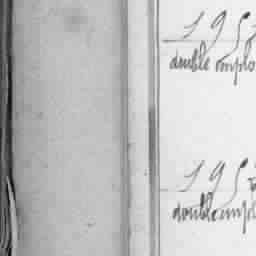 195
double emplo
195
double empl